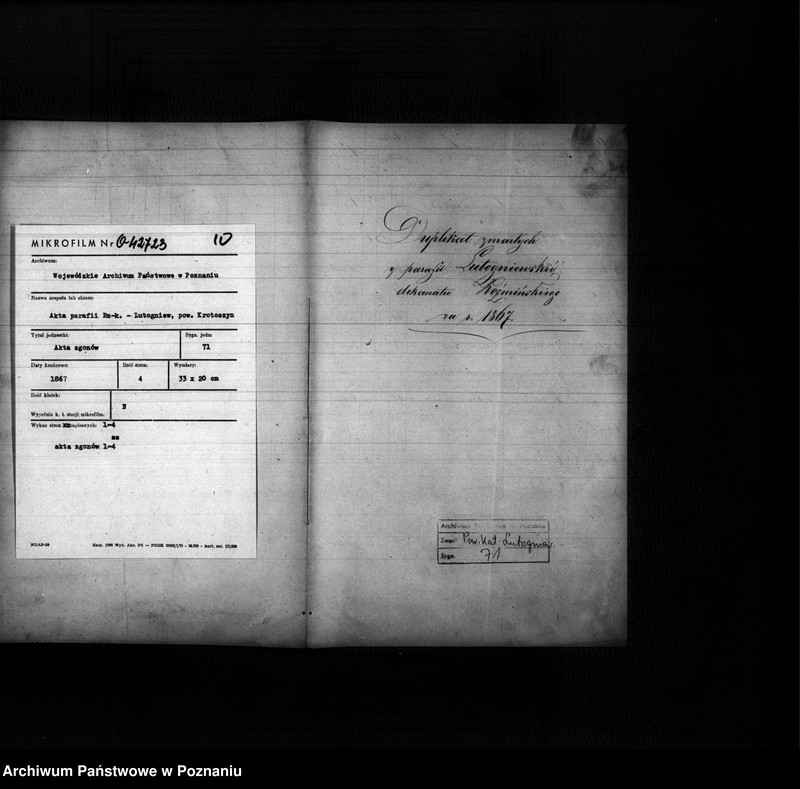 MIKROFILM Nr O-42723 10
Archiwum:
Wojewódzkie Archiwum Państwowe w Poznaniu
Nazwa zespołu lub zbioru:
Akta parafii Rz-k. - Lutogniew, pow. Krotoszyn
Tytuł jednostki: Sygn. jedn:
Akta zgonów 71
Daty krańcowe: Ilość stron: Wymiary:
1867 4 33 x 20 cm
Ilość klatek:
N
Wypełnia k. t. stacji mikrofilm.
Wykaz stron zapisanych: 1-4
ss
akta zgonów 1-4
Duplikat zmarłych
z parafii Lutogniewskiéj,
dekanatu Koźmińskiego
za r. 1867.
Archiwum Państwowe w Poznaniu
Zespół Par. Kat. Lutogniew
Sygn. 71
Archiwum Państwowe w Poznaniu